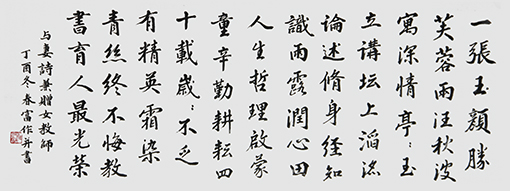 一張玉顏勝
芙蓉兩汪秋波
寓深情亭〻玉
立講坛上滔滔
論述脩身經知
識雨露潤心田
人生哲理啟蒙
童辛勤耕耘四
十載歲〻不乏
有精英霜染
青丝終不悔教
書育人最光榮
与妻詩兼贈女教師
丁酉冬春富作并書